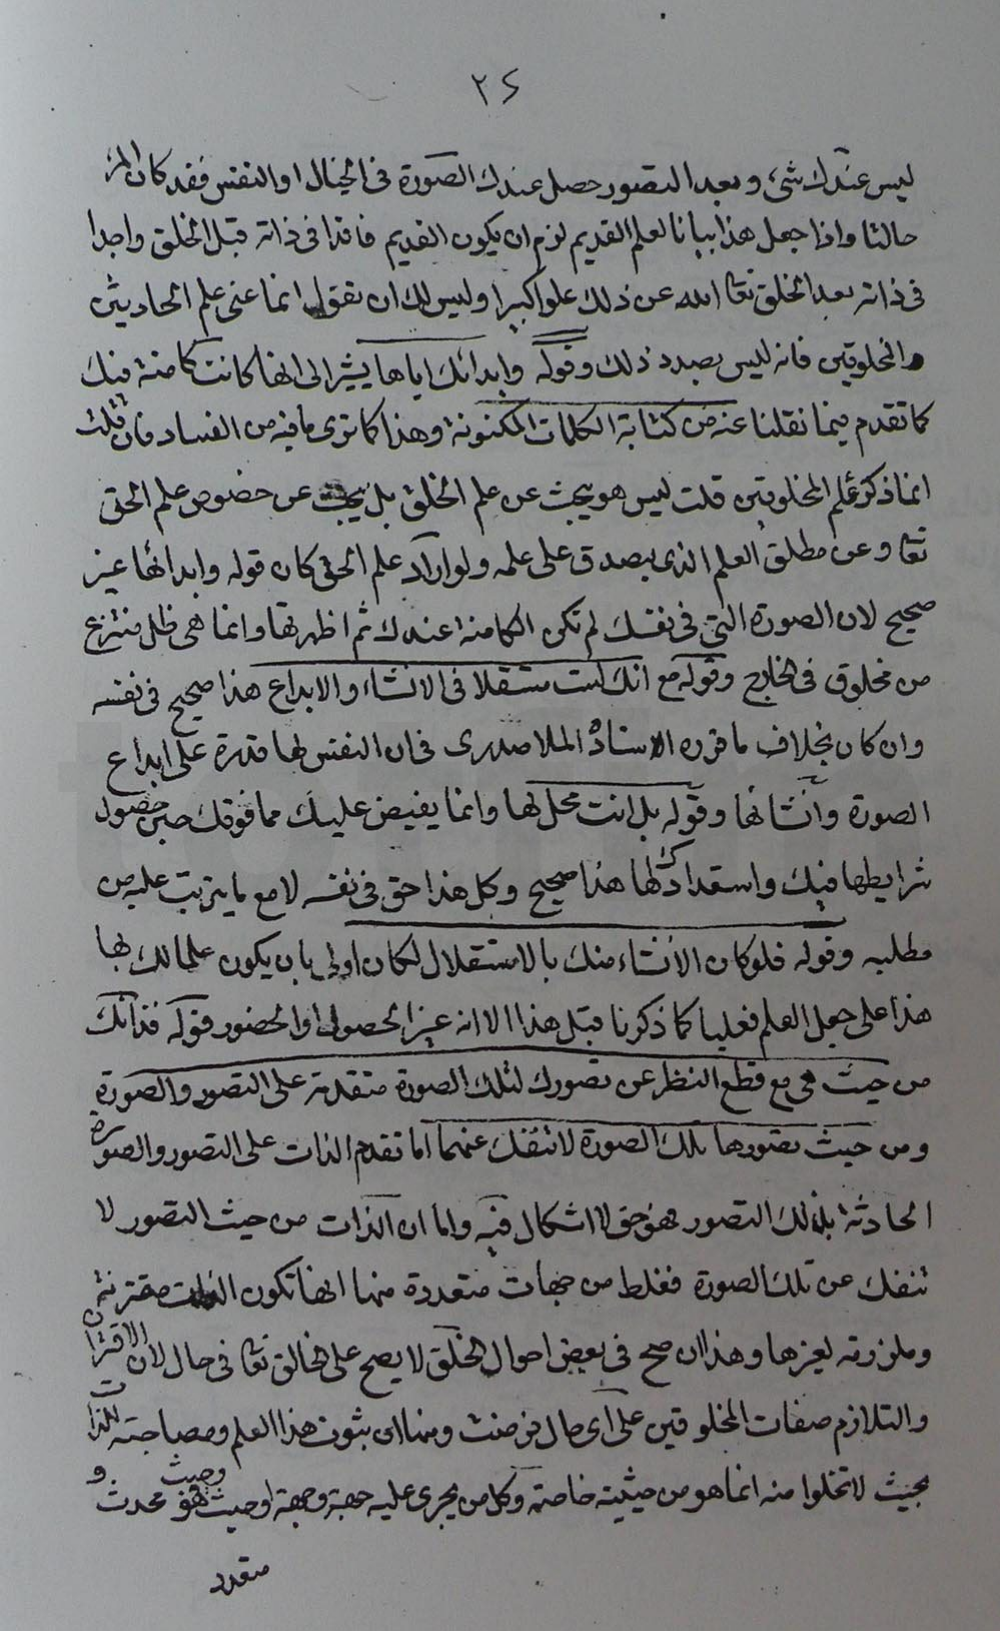 ٢٤
ليس عندك شئ و بعد التصور حصل عندك الصورة في الخيال او النفس فقد كان لك
حالتا واذا جعل هذا بيانا لعلم القديم لزم ان يكون القديم فاقدا في ذاته قبل الخلق واجدا
في ذاته بعد الخلق تعا الله عن ذلك علوا كبيرا وليس لك ان تقول انما عنى علم الحادثين
والمخلوقين فانه ليس بصدد ذلك وقوله وابدائك اياها يشير الى انها كانت كامنة فيك
كما تقدم فيما نقلنا عنه من كتابة الكلمات المكنونة وهذا كما ترى ما فيه من الفساد فان قلت
انما ذكر علم المخلوقين قلت ليس هو يبحث عن علم الخلق بل يبحث عن خصوص علم الحق
تعا و عن مطلق العلم الذي يصدق على علمه ولو اراد علم الحق كان قوله وابدائها غير
صحيح لان الصورة التي في نفسك لم تكن الكامنة عندك ثم اظهرتها وانما هي ظل منتزع
من مخلوق في الخارج وقوله مع انك لست مستقلا في الانشاء والابداع هذا صحيح في نفسه
وان كان بخلاف ما قرره الاستاذه الملا صدرى في ان النفس لها قدرة على ابداع
الصورة وانشائها وقوله بل انت محل لها وانما يفيض عليك مما فوقك حين حصول
شرايطها فيك واستعدادك لها هذا صحيح وكل هذا حق في نفسه لا مع ما يترتب عليه من
مطلبه وقوله فلو كان الانشاء منك بالاستقلال لكان اولى بان يكون علما لك بها
هذا على جعل العلم فعليا كما ذكرنا قبل هذا الا انه غير الحصول او الحضور قوله فذاتك
من حيث هي مع قطع النظر عن تصورك لتلك الصورة متقدمة على التصور والصورة
ومن حيث تصورها تلك الصورة لا تنفك عنهما اما تقدم الذات على التصور والصورة
الحادثة بذلك التصور فهو حق لا اشكال فيه واما ان الذات من حيث التصور لا
تنفك عن تلك الصورة فغلط من جهات متعددة منها انها تكون الذات مقترنة
وملزومة لغيرها وهذا ان صح في بعض احوال الخلق لا يصح على الخالق تعا في حال لان الاقتران
والتلازم صفات المخلوقين على اى حال فرضت ومنها ان ثبوت هذا العلم ومصاحبته للذات
بحيث لا تخلوا منه انما هو من حيثية خاصة وكل من يجرى عليه جهة وجهة او حيث وحيث فهو محدث و
متعدد